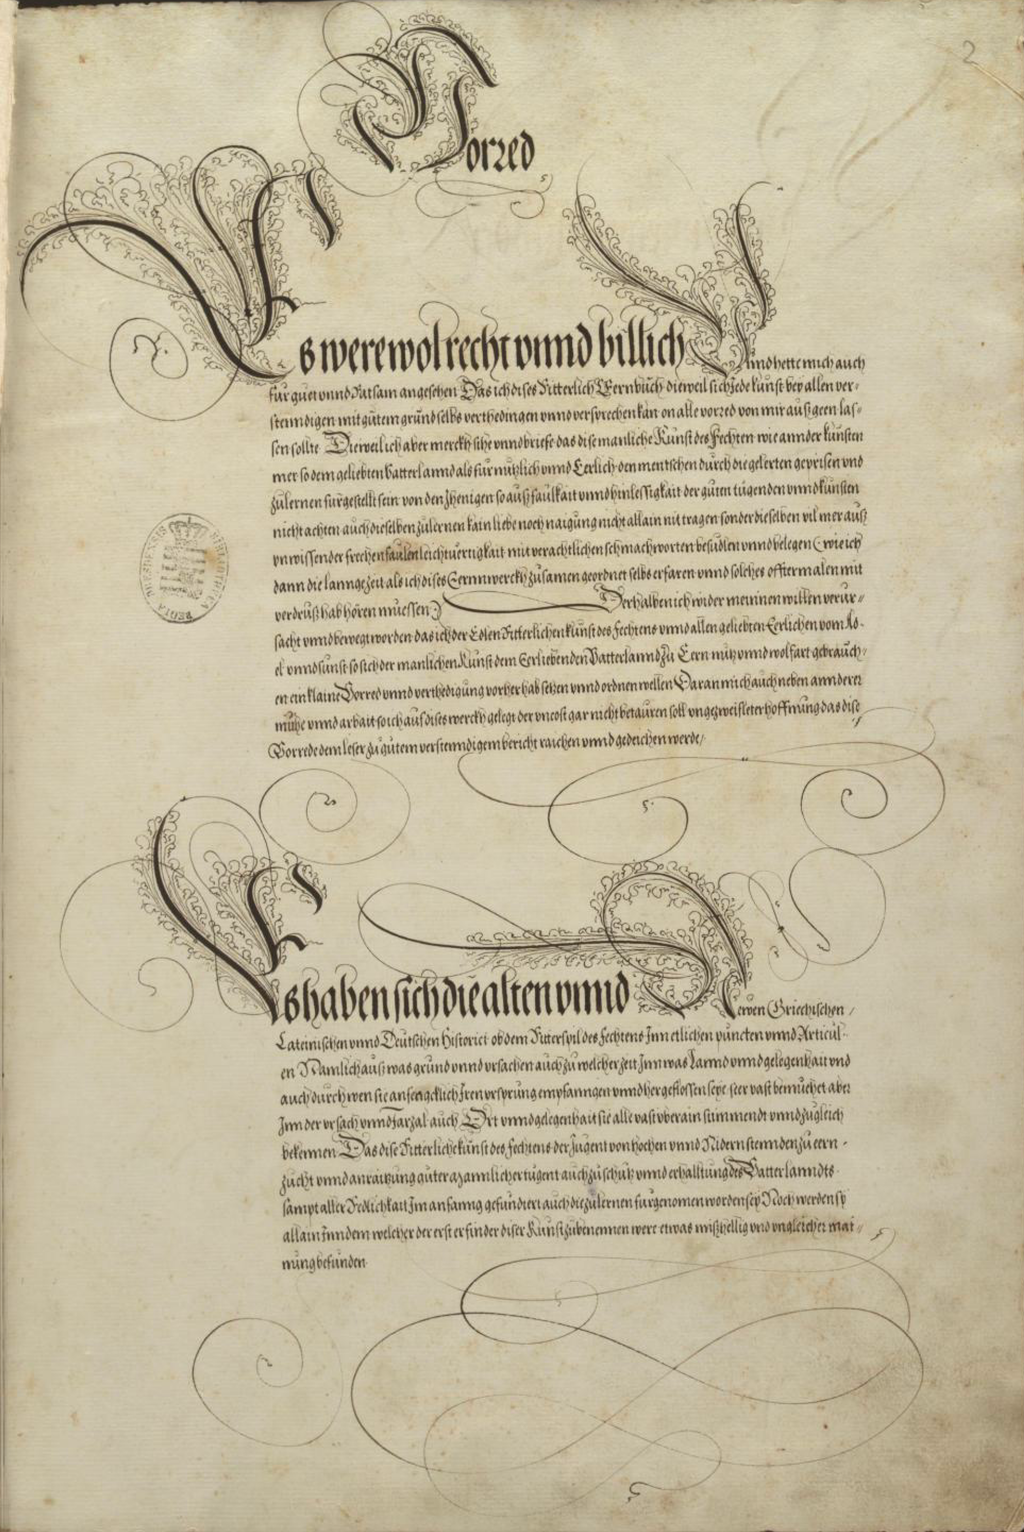 2
Vorred
Es were wol recht vnnd billich Vnnd hette mich auch
für guet vnnd Ratsam angesehen Das ich dises Ritterlich Vernbuch dieweil sich Jede kunst bey allen ver-
stenndigen mit gutem grund selbs verthedingen vnnd versprechen kan on alle vorred von mir auß geen las-
sen sollte Dieweil ich aber merckh sihe vnnd briefe das dise manliche Kunst des Fechten wie annder kunsten
mer so dem geliebten Vatterlannd als für nutzlich vnnd Eerlich den mentschen durch die gelerten geprisen vnd
zulernen furgestellt sein von den Jhenigen so auß faulkait vnnd hinlessigkait der guten tugenden vnnd kunsten
nicht achten auch dieselben zulernen kain liebe noch naigung nicht allain nit tragen sonder dieselben vil mer auß
vnwissender frechen faulen leichtuertigkait mit verachtlichen schmachworten besudlen vnnd belegen (wie ich
dann die lanng zeit als ich dises Eernwerckh zusamen geordnet selbs erfaren vnnd solches offtermalen mit
verdruß hab hören muessen) Derhalben ich wider meinen willen verur-
sacht vnnd bewegt worden das ich der Edlen Ritterlichen kunst des Fechtens vnnd allen geliebten Eerlichen vom Ad-
el vnnd sunst so sich der manlichen Kunst dem Eerliebenden Vatterlannd zu Eern nutz vnnd wolfart gebrauch-
en ein klaine Vorred vnnd verthedigung vorher hab setzen vnnd ordnen wellen Daran mich auch neben annderer
mühe vnnd arbait so ich auf dises werckh gelegt der vncost gar nicht betauren soll vngezweifleter hoffnung das dise
Vorrede dem leser zu gutem verstenndigem bericht raichen vnnd gedeichen werde/
Es haben sich die alten vnnd Newen Griechischen/
Lateinischen vnnd Deutschen Historici ob dem Ritterspil des Fechtens Inn etlichen puncten vnnd Articul-
en Namlich auß was grund vnnd vrsachen auch zu welcher zeit Jnn was Lannd vnnd gelegenhait vnd
auch durch wen sie anfengcklich Jren vrsprung empfanngen vnnd hergeflossen seye seer vast bemuehet aber
Jnn der vrsach vnnd Jarzal auch Ort vnnd gelegenhait sie alle vast vberain stimmendt vnnd zugleich
bekennen Das dise Ritterliche kunst des Fechtens der Jugent von hochen vnnd Nidern stennden zu eern-
zucht vnnd anraitzung guter mannlicher tugent auch zu schutz vnnd erhalltung des Vatterlanndts
sampt aller Redlichkait Jm anfanng gefundiert auch die zulernen furgenomen worden sey Noch werden sy
allain Jnn dem welcher der erst erfinder diser Kunst zubenennen were etwas mißhellig vnd vngleicher mai-
nung befunden